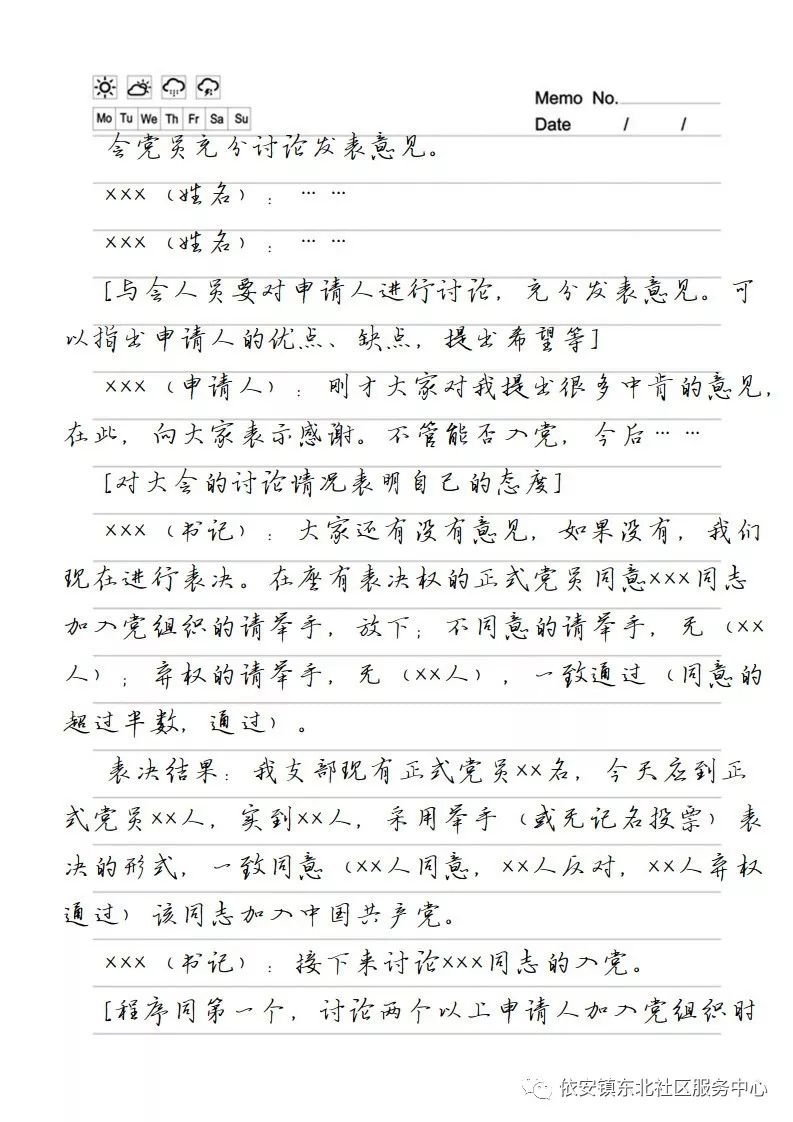 Memo No.
Mo Tu We Th Fr Sa Su
Date / /
会党员充分讨论发表意见。
×××（姓名）：… …
×××（姓名）：… …
[与会人员要对申请人进行讨论，充分发表意见。可
以指出申请人的优点、缺点，提出希望等]
×××（申请人）：刚才大家对我提出很多中肯的意见，
在此，向大家表示感谢。不管能否入党，今后… …
[对大会的讨论情况表明自己的态度]
×××（书记）：大家还有没有意见，如果没有，我们
现在进行表决。在座有表决权的正式党员同意×××同志
加入党组织的请举手，放下；不同意的请举手，无（××
人）；弃权的请举手，无（××人），一致通过（同意的
超过半数，通过）。
表决结果：我支部现有正式党员××名，今天应到正
式党员××人，实到××人，采用举手（或无记名投票）表
决的形式，一致同意（××人同意，××人反对，××人弃权
通过）该同志加入中国共产党。
×××（书记）：接下来讨论×××同志的入党。
[程序同第一个，讨论两个以上申请人加入党组织时
依安镇东北社区服务中心